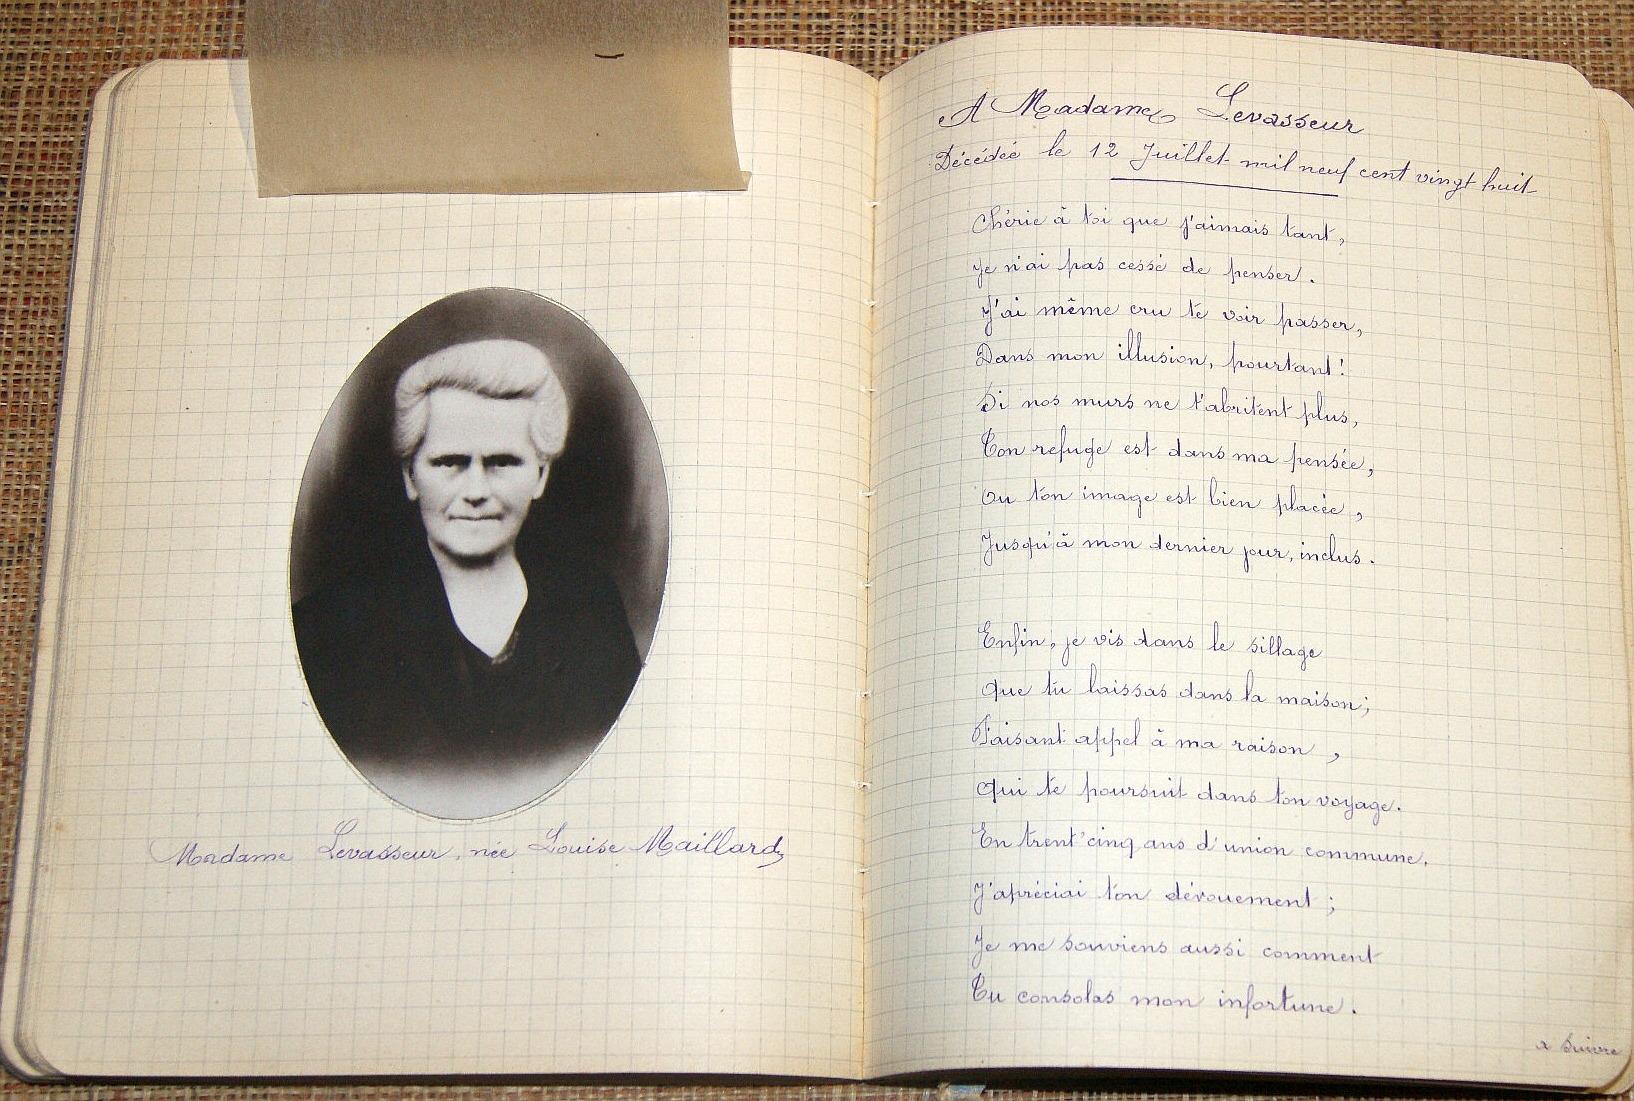 Madame Levasseur, née Louise Maillard
A Madame Levasseur
Décédée le 12 Juillet mil neuf cent vingt huit
Chérie à toi que j'aimais tant,
Je n'ai pas cessé de penser.
J'ai même cru te voir passer,
Dans mon illusion, pourtant!
Si nos murs ne t'abritent plus,
Ton refuge est dans ma pensée,
Ou ton image est bien placée,
Jusqu'à mon dernier jour, inclus.
Enfin, je vis dans le sillage
Que tu laissas dans la maison;
Faisant appel à ma raison,
Qui te poursuit dans ton voyage.
En trent'cinq ans d'union commune,
J'apréciai ton dévouement;
Je me souviens aussi comment
Tu consolas mon infortune.
a suivre